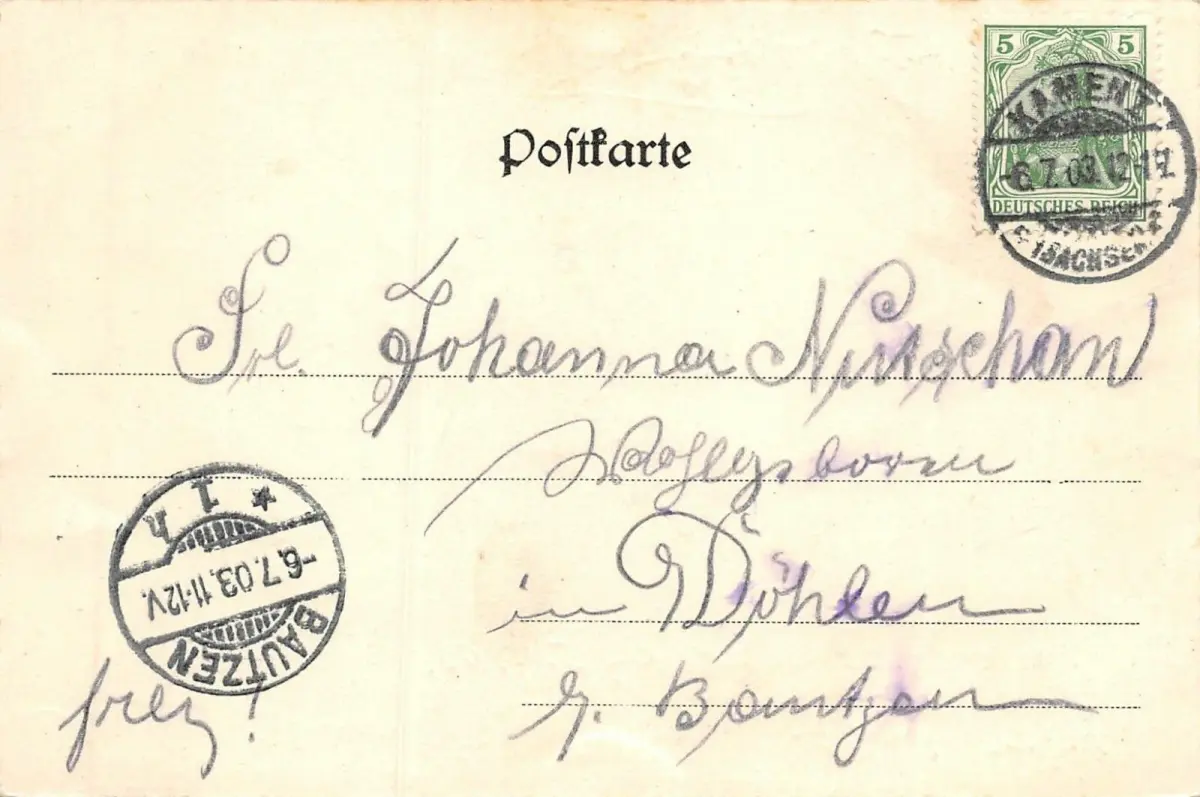 5 5
DEUTSCHES REICH
KAMENZ
-6.7.03.12-1N.
(SACHSEN)
Postkarte
Frl. Johanna
in Döhlen
b. Bautzen
* 1 h
-6.7.03.11-12V.
BAUTZEN
frei!